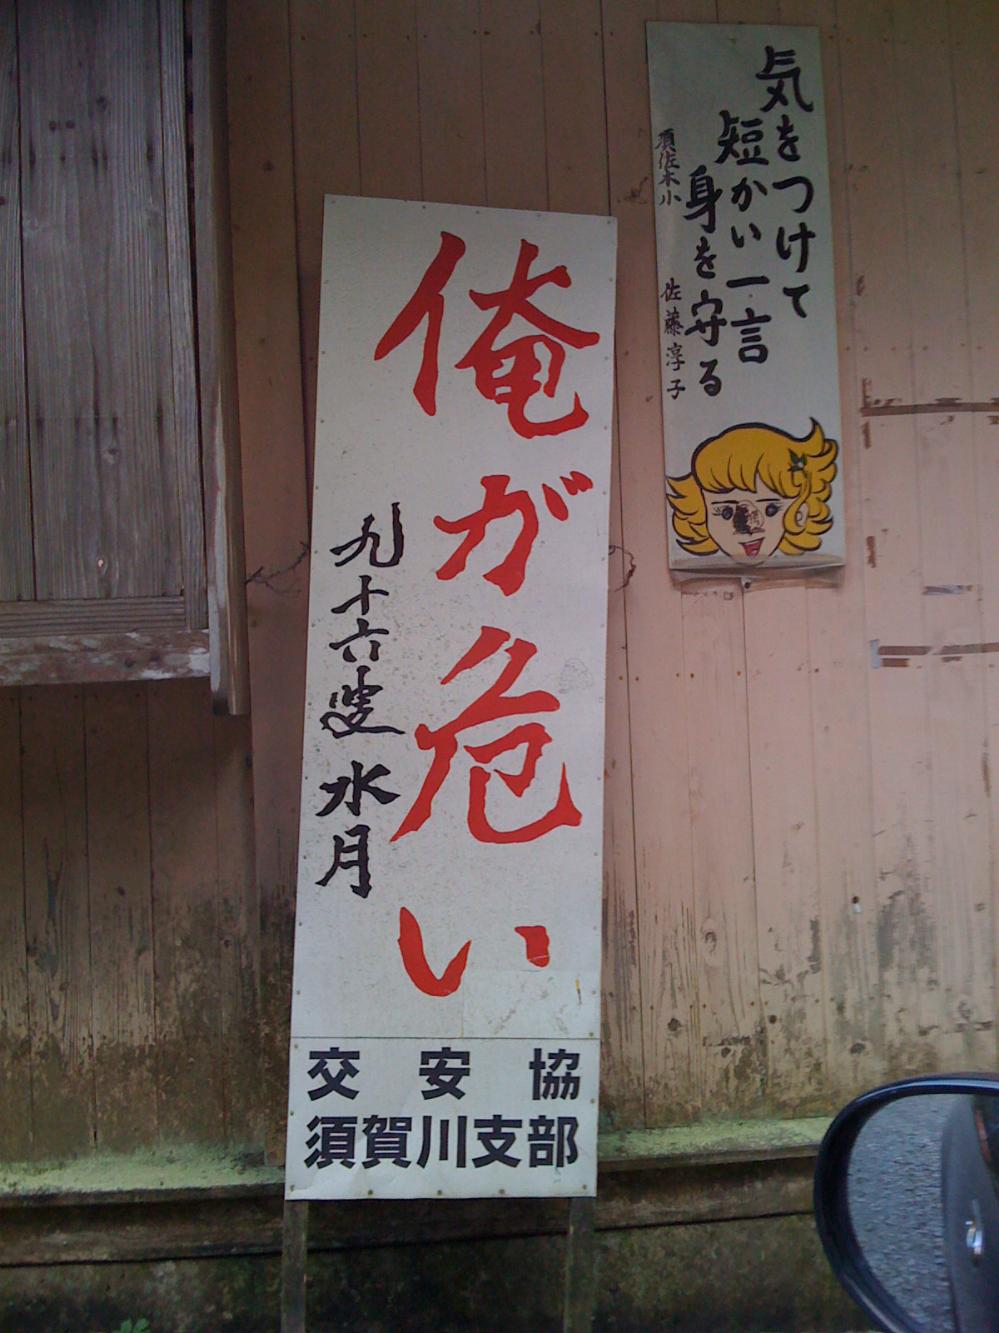 気をつけて
短かい一言
身を守る
須佐木小 佐藤淳子
俺が危い
九十六叟 水月
交安協
須賀川支部